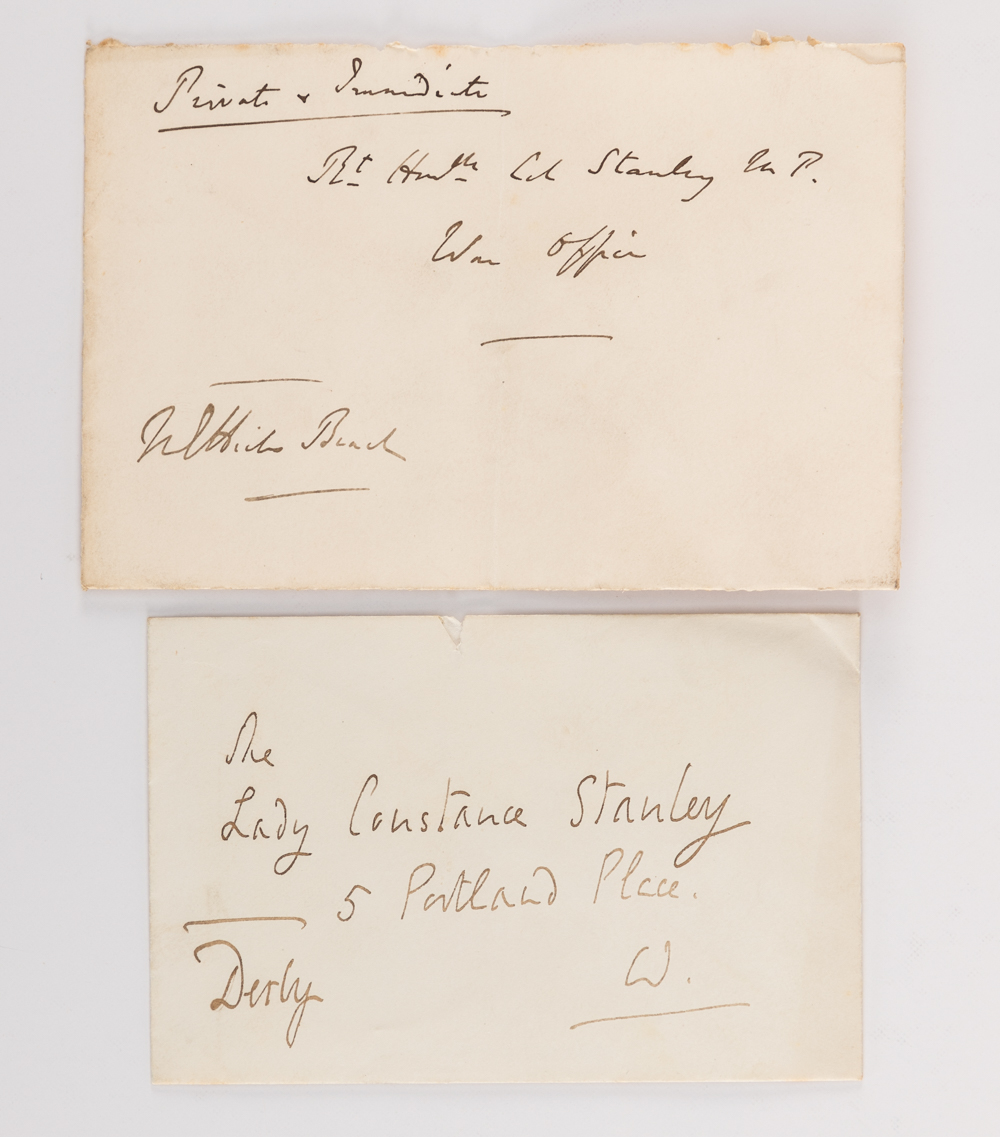 Private & Immediate
Rt Honble Col Stanley M P.
War Office
M E Hicks Beach
The
Lady Constance Stanley
5 Portland Place.
W.
Derby